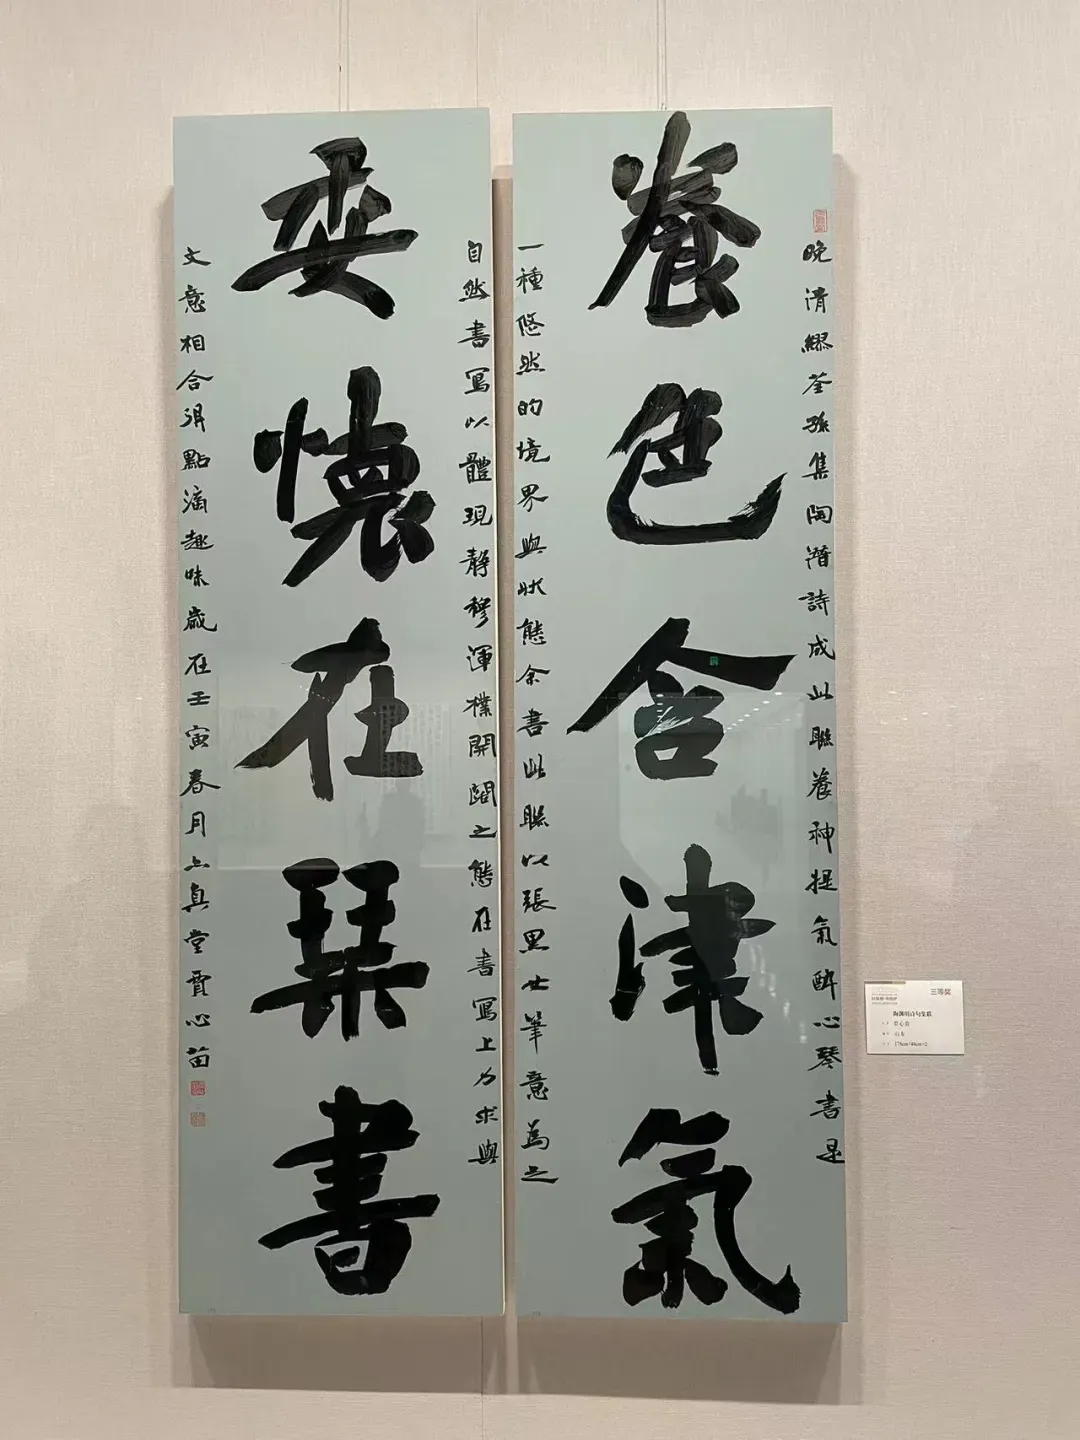 養色含津氣
晚清繆荃孫集陶潛詩成此聯養神提氣醉心琴書是
一種悠然的境界與狀態余書此聯以張黑女筆意為之
委懷在琹書
自然書寫以體現静穆渾樸開闊之態在書寫上力求與
文意相合得點滴趣味歲在壬寅春月上真堂賈心苗
三等奖
陶渊明诗句集联